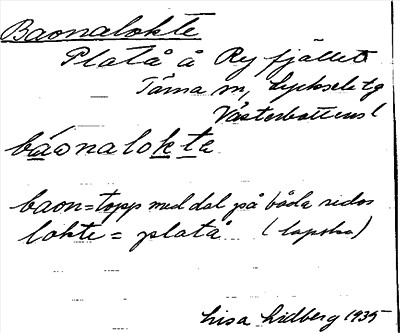 Baonalokte
Platå å Ryfjället
Tärna sn, Lycksele tg
Västerbottens l
báonalokta
baon=topp med dal på båda sidor
lokte = platå (lapska)
Lisa Lidberg 1935